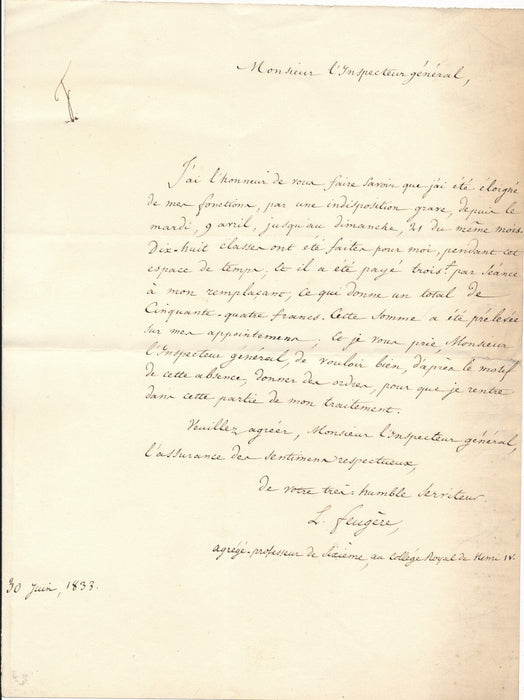 Monsieur l'Inspecteur général,
J'ai l'honneur de vous faire savoir que j'ai été éloigné
de mes fonctions, par une indisposition grave, depuis le
mardi, 9 avril, jusqu'au dimanche, 21 du même mois.
Dix-huit classes ont été faites pour moi, pendant cet
espace de temps, et il a été payé trois f. par séance
à mon remplaçant, ce qui donne un total de
Cinquante-quatre francs. Cette somme a été prélevée
sur mes appointemens, et je vous prie, Monsieur
l'Inspecteur général, de vouloir bien, d'après le motif
de cette absence, donner des ordres, pour que je rentre
dans cette partie de mon traitement.
Veuillez agréer, Monsieur l'Inspecteur général,
l'assurance des sentimens respectueux,
de votre très-humble serviteur.
L. Feugère,
agrégé-professeur de Sixième, au Collège Royal de Henri IV.
30 Juin, 1833.